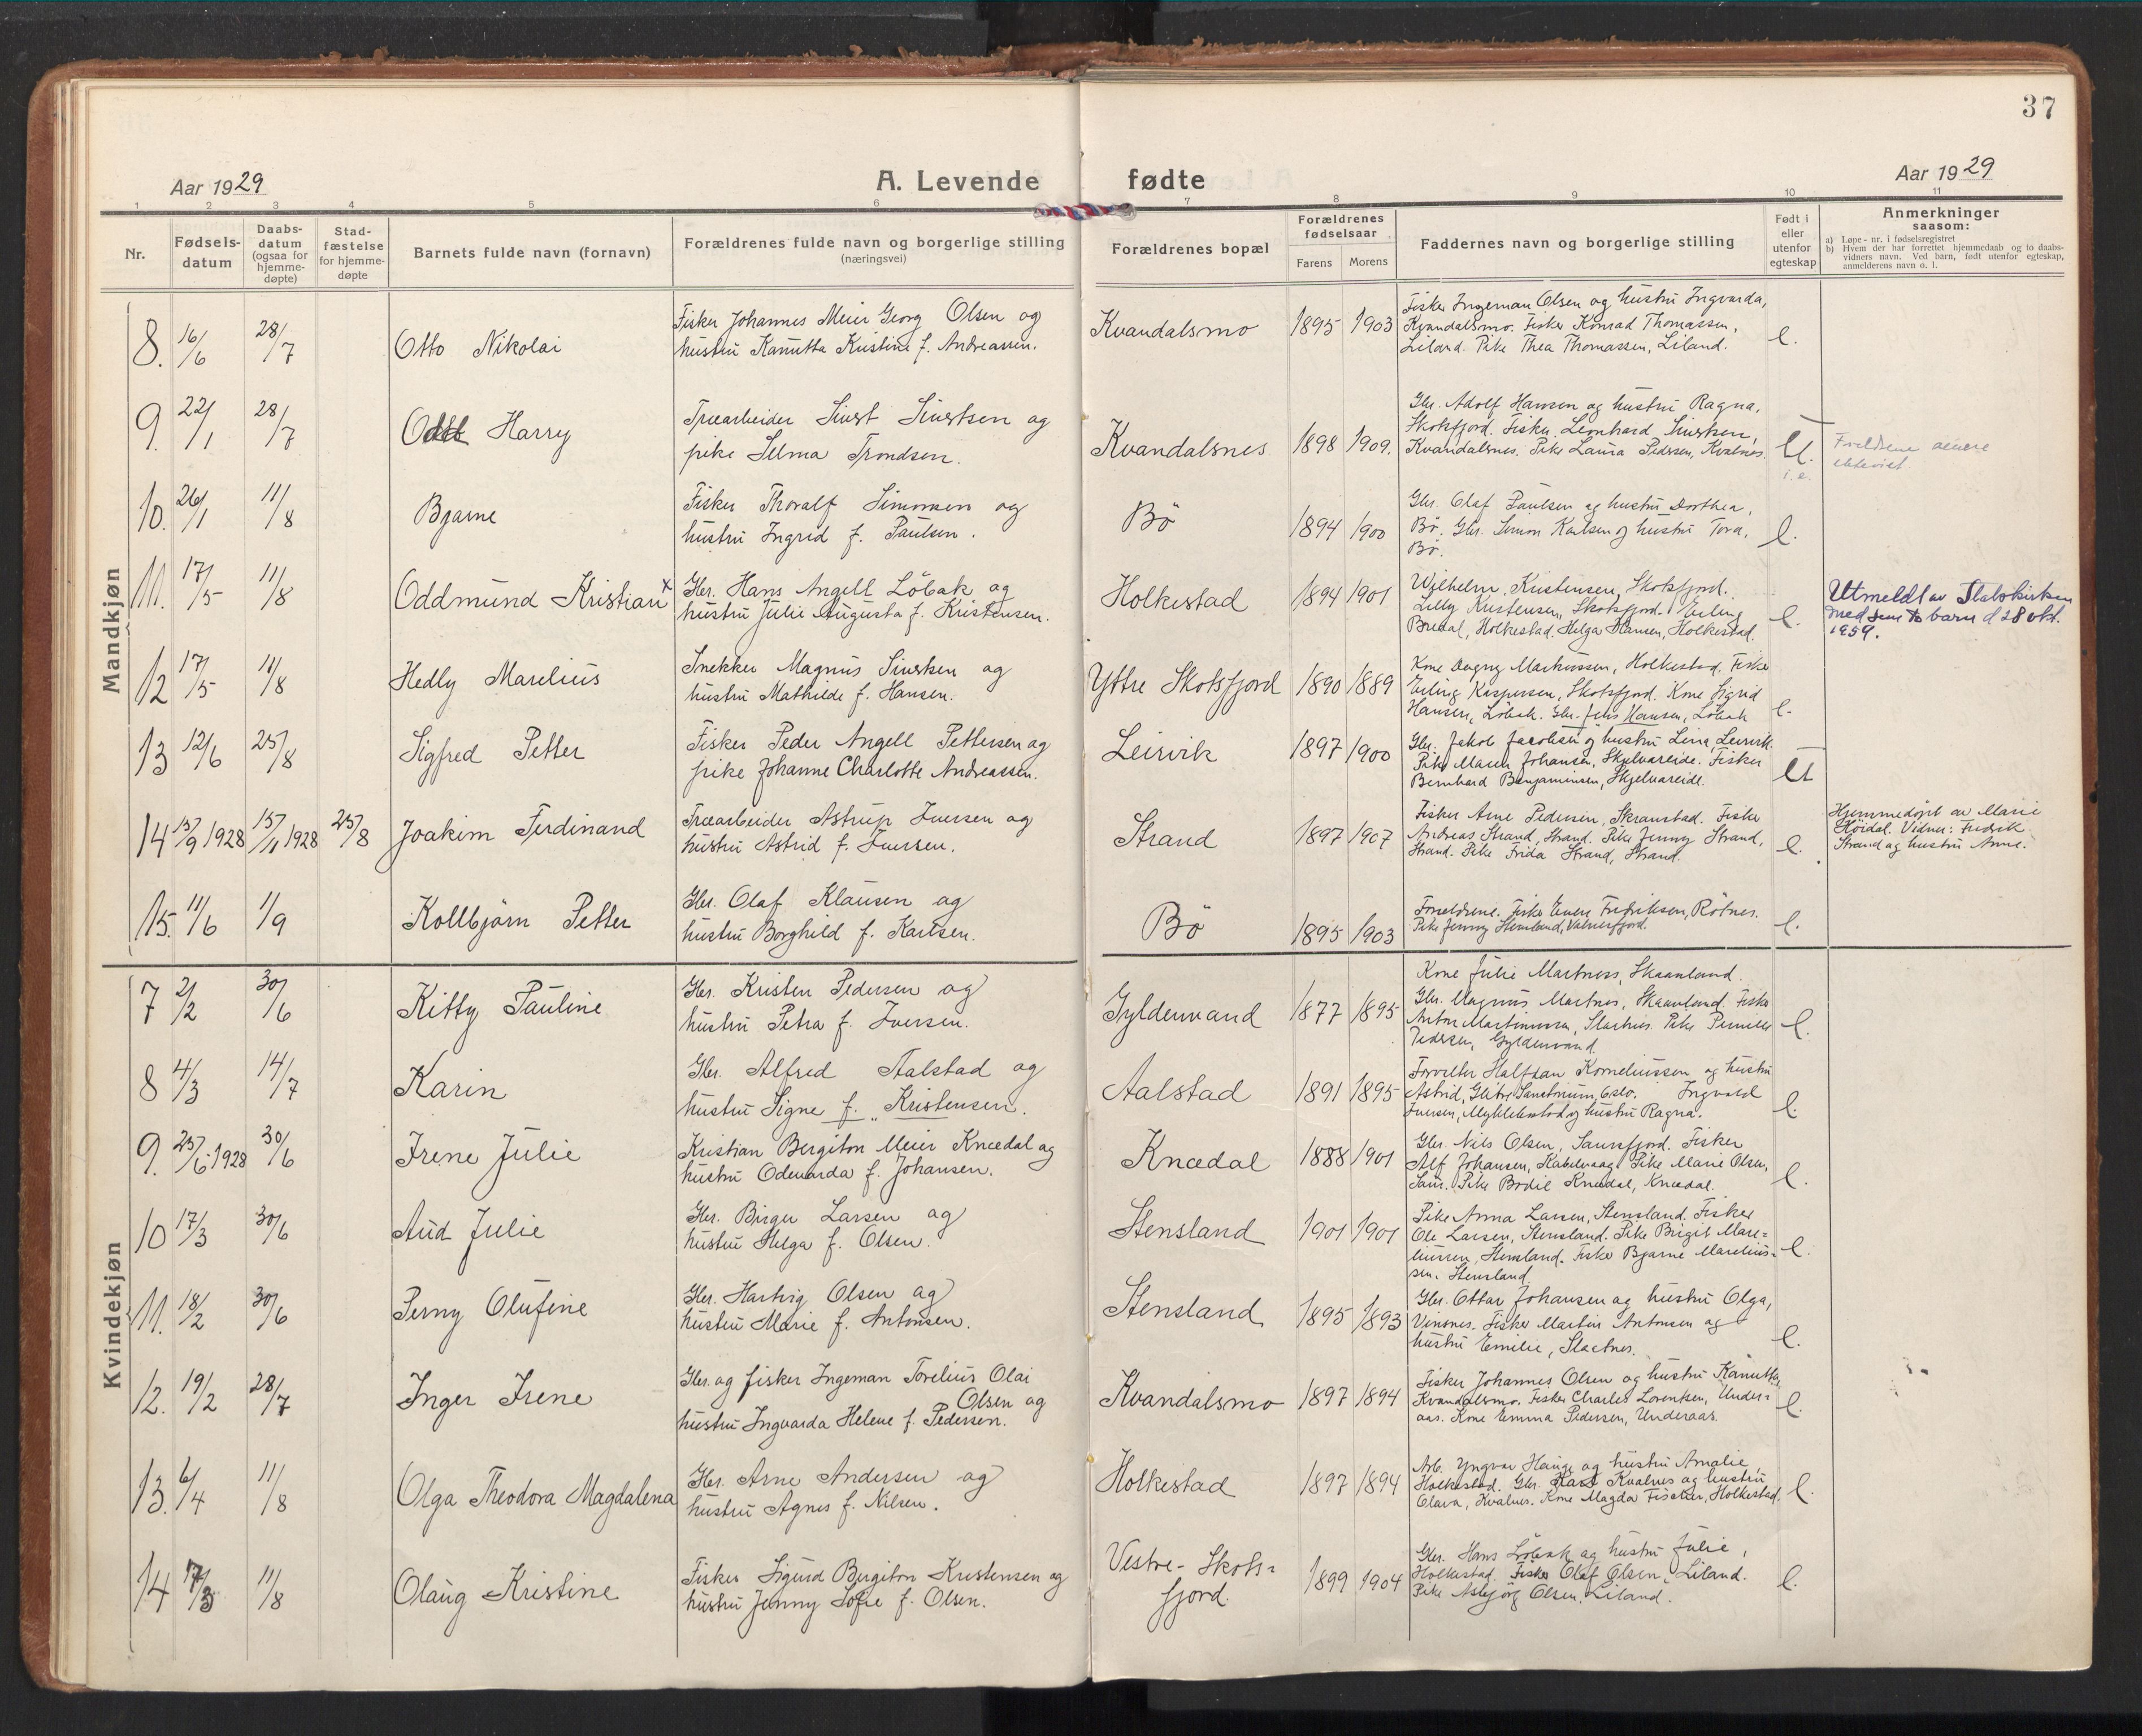 37
Aar 1929
A. Levende fødte
Aar 1929
1 2 3 4 5 6 7 8 9 10 11
Nr.
Fødsels-
datum
Daabs-
datum
(ogsaa for
hjemme-
døpte)
Stad-
fæstelse
for hjemme-
døpte
Barnets fulde navn (fornavn)
Forældrenes fulde navn og borgerlige stilling
(næringsvei)
Forældrenes bopæl
Forældrenes
fødselsaar
Farens
Morens
Faddernes navn og borgerlige stilling
Født i
eller
utenfor
egteskap
Anmerkninger
saasom:
a) Løpe-nr. i fødselsregistret
b) Hvem der har forrettet hjemmedaab og to daabs-
vidners navn. Ved barn, født utenfor egteskap,
anmelderens navn o. l.
Mandkjøn
8. 16/6 28/7 Otto Nikolai
Fisker Johannes Meier Georg Olsen og
hustru Kanutta Kristine f. Andreassen.
Kvandalsmo 1895 1903
Fisker Ingeman Olsen og hustru Ingvarda,
Kvandalsmo. Fisker Konrad Thomassen,
Liland. Pike Thea Thomassen, Liland.
e.
9. 22/1 28/7 Odd Harry
Træarbeider Sivert Sivertsen og
pike Selma Trondsen.
Kvandalsnes 1898 1909.
Gbr. Adolf Hansen og hustru Ragna,
Skotsfjord. Fisker Leonhard Sivertsen,
Kvandalsnes. Pike Laura Pedersen, Kvalnes.
U.
i.e.
Foreldrene senere
ekteviet
10. 26/1 11/8 Bjarne
Fisker Thoralf Simonsen og
hustru Ingrid f. Paulsen.
Bö 1894 1900
Gbr. Olaf Paulsen og hustru Dorthea,
Bö. Gbr. Simon Karlsen og hustru Tora,
Bö.
e.
11. 17/5 11/8 Oddmund Kristian x
Gbr. Hans Angell Löbak og
hustru Julie Augusta f. Kristensen.
Holkestad 1894 1901
Wilhelm Kristensen, Skotsfjord.
Lilly Kristensen, Skotsfjord. Erling
Bredal, Holkestad. Helga Hansen, Holkestad.
e.
Utmeldt av Statskirken
med sine to barn d 28 okt.
1959.
12 17/5 11/8 Hedly Marelius
Snekker Magnus Sivertsen og
hustru Mathilde f. Hansen.
Yttre Skotsfjord 1890 1889
Kone Dagny Markussen, Holkestad. Fisker
Erling Kaspersen, Skotsfjord. Kone Sigrid
Hansen, Löbak. Gbr. Jens Hansen, Löbak
e.
13 12/6 25/8 Sigfred Petter
Fisker Peder Angell Pettersen og
pike Johanne Charlotte Andreassen.
Leirvik 1897 1900
Gbr. Jakob Jacobsen og hustru Lina, Leirvik.
Pike Maren Johansen, Skjelvareide. Fisker
Bernhard Benjaminsen, Skjelvareide.
U
14 15/9 1928 15/11 1928 25/8 Joakim Ferdinand
Træarbeider Astrup Iversen og
hustru Astrid f. Iversen.
Strand 1897 1907
Fisker Arne Pedersen, Skramstad. Fisker
Andreas Strand, Strand. Pike Jenny Strand,
Strand. Pike Frida Strand, Strand.
e.
Hjemmedøpt av Marie
Höidal. Vidner: Fredrik
Strand og hustru Anne.
15. 11/6 1/9 Kollbjörn Petter
Gbr. Olaf Klausen og
hustru Borghild f. Karlsen.
Bö 1895 1903
Forældrene. Fisker Fredriksen, Rötnes.
Pike Jenny Stensland, Valnesfjord.
e.
Kvindekjøn
7 2/2 30/6 Kitty Pauline
Gbr. Kristen Pedersen og
hustru Petra f. Iversen.
Gyldenvand 1877 1895
Kone Julie Martness, Skaanland.
Gbr. Magnus Martnes, Skaanland. Fisker
Anton Martinussen, Slaatnes. Pike Pernille
Pedersen, Gyldenvand.
e.
8 4/3 14/7 Karin
Gbr. Alfred Aalstad og
hustru Signe f. Kristensen.
Aalstad 1891 1895
Forvalter Halfdan Korneliussen og hustru
Astrid, Glitre Sanatorium, Oslo. Ingvald
Iversen, Myklebostad og hustru Ragna.
e.
9. 25/6 1928 30/6 Irene Julie
Kristian Bergiton Meier Knædal og
hustru Odevarda f. Johansen.
Knædal 1888 1901
Gbr. Nils Olsen, Saursfjord. Fisker
Alf Johansen, Kabelvaag. Pike Marie Olsen,
Saur. Pike Bodil Knædal, Knædal.
e.
10 17/3 30/6 Aud Julie
Gbr. Birger Larsen og
hustru Helga f. Olsen.
Stensland 1901 1901
Pike Anna Larsen, Stensland. Fisker
Ole Larsen, Stensland. Pike Birgit Mare=
liussen, Stensland. Fisker Bjarne Marelius=
sen. Stensland.
e.
11. 18/2 30/6 Perny Olufine
Gbr. Hartvig Olsen og
hustru Marie f. Antonsen.
Stensland 1895 1893
Gbr. Ottar Johansen og hustru Olga,
Vinsnes. Fisker Martin Antonsen og
hustru Emilie, Slaatnes.
e.
12. 19/2 28/7 Inger Irene
Gbr. og fisker Ingeman Torelius Olai
Olsen og
hustru Ingvarda Helene f. Pedersen.
Kvandalsmo 1897 1894
Fisker Johannes Olsen og hustru Kanutta,
Kvandalsmo. Fisker Charles Lorentsen, Under=
aas. Kone Emma Pedersen, Underaas.
e.
13. 6/4 11/8 Olga Theodora Magdalena
Gbr. Arne Andersen og
hustru Agnes f. Nilsen.
Holkestad 1897 1894
Arb. Yngvar Hauge og hustru Amalie,
Holkestad. Gbr. Karl Kvalnes og hustru
Olava, Kvalnes. Kone Magda Fischer, Holkestad.
e.
14 17/3 11/8 Olaug Kristine
Fisker Sigurd Bergiton Kristensen og
hustru Jenny Sofie f. Olsen.
Vestre-Skots=
fjord. 1899 1904
Gbr. Hans Löbak og hustru Julie,
Holkestad. Fisker Olaf Olsen, Liland.
Pike Asbjörg Olsen, Liland.
e.